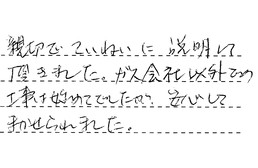 親切でていねいに説明して
頂きました。ガス会社以外での
工事は始めてでしたが、安心して
まかせられました。